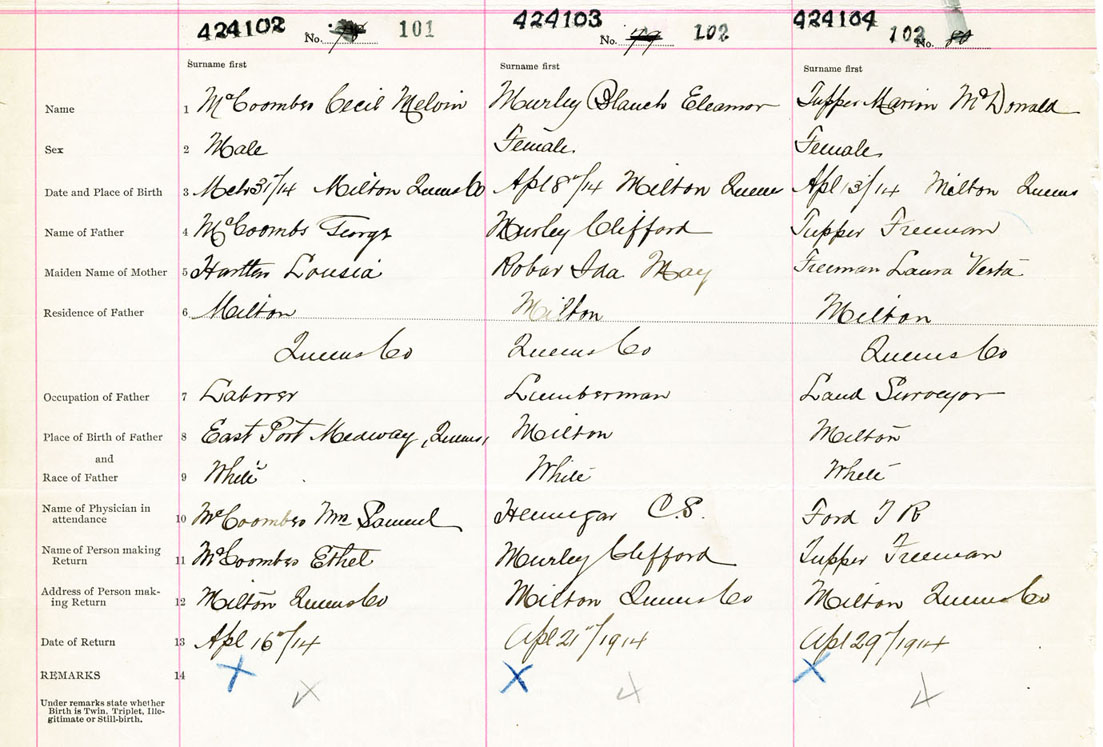 424102 No. 101 424103 No. 79 102 424104 102 No. 80
Surname first Surname first Surname first
Name 1 McCoombs Cecil Melvin Murley Blanch Eleamor Tupper Marion McDonald
Sex 2 Male Female. Female.
Date and Place of Birth 3 Mch 31"/14 Milton Queens Co Apl 8"/14 Milton Queens Apl 13/14 Milton Queens
Name of Father 4 McCoombs George Murley Clifford Tupper Freeman
Maiden Name of Mother 5 Lousia Robar Ida May Freeman Laura Vesta
Residence of Father 6 Milton Milton Milton
Queens Co Queens Co Queens Co
Occupation of Father 7 Laborer Lumberman Land Surveyor
Place of Birth of Father 8 East Port Medway, Queens, Milton Milton
and
Race of Father 9 White White White
Name of Physician in
attendance 10 McCoombs Mrs Samuel Hennigar C.S. Ford T R
Name of Person making
Return 11 McCoombs Ethel Murley Clifford Tupper Freeman
Address of Person mak-
ing Return 12 Milton Queens Co Milton Queens Co Milton Queens Co
Date of Return 13 Apl 16"/14 Apl 21"/1914 Apl 29"/1914
REMARKS 14 X X X
Under remarks state whether
Birth is Twin, Triplet, Ille-
gitimate or Still-birth.